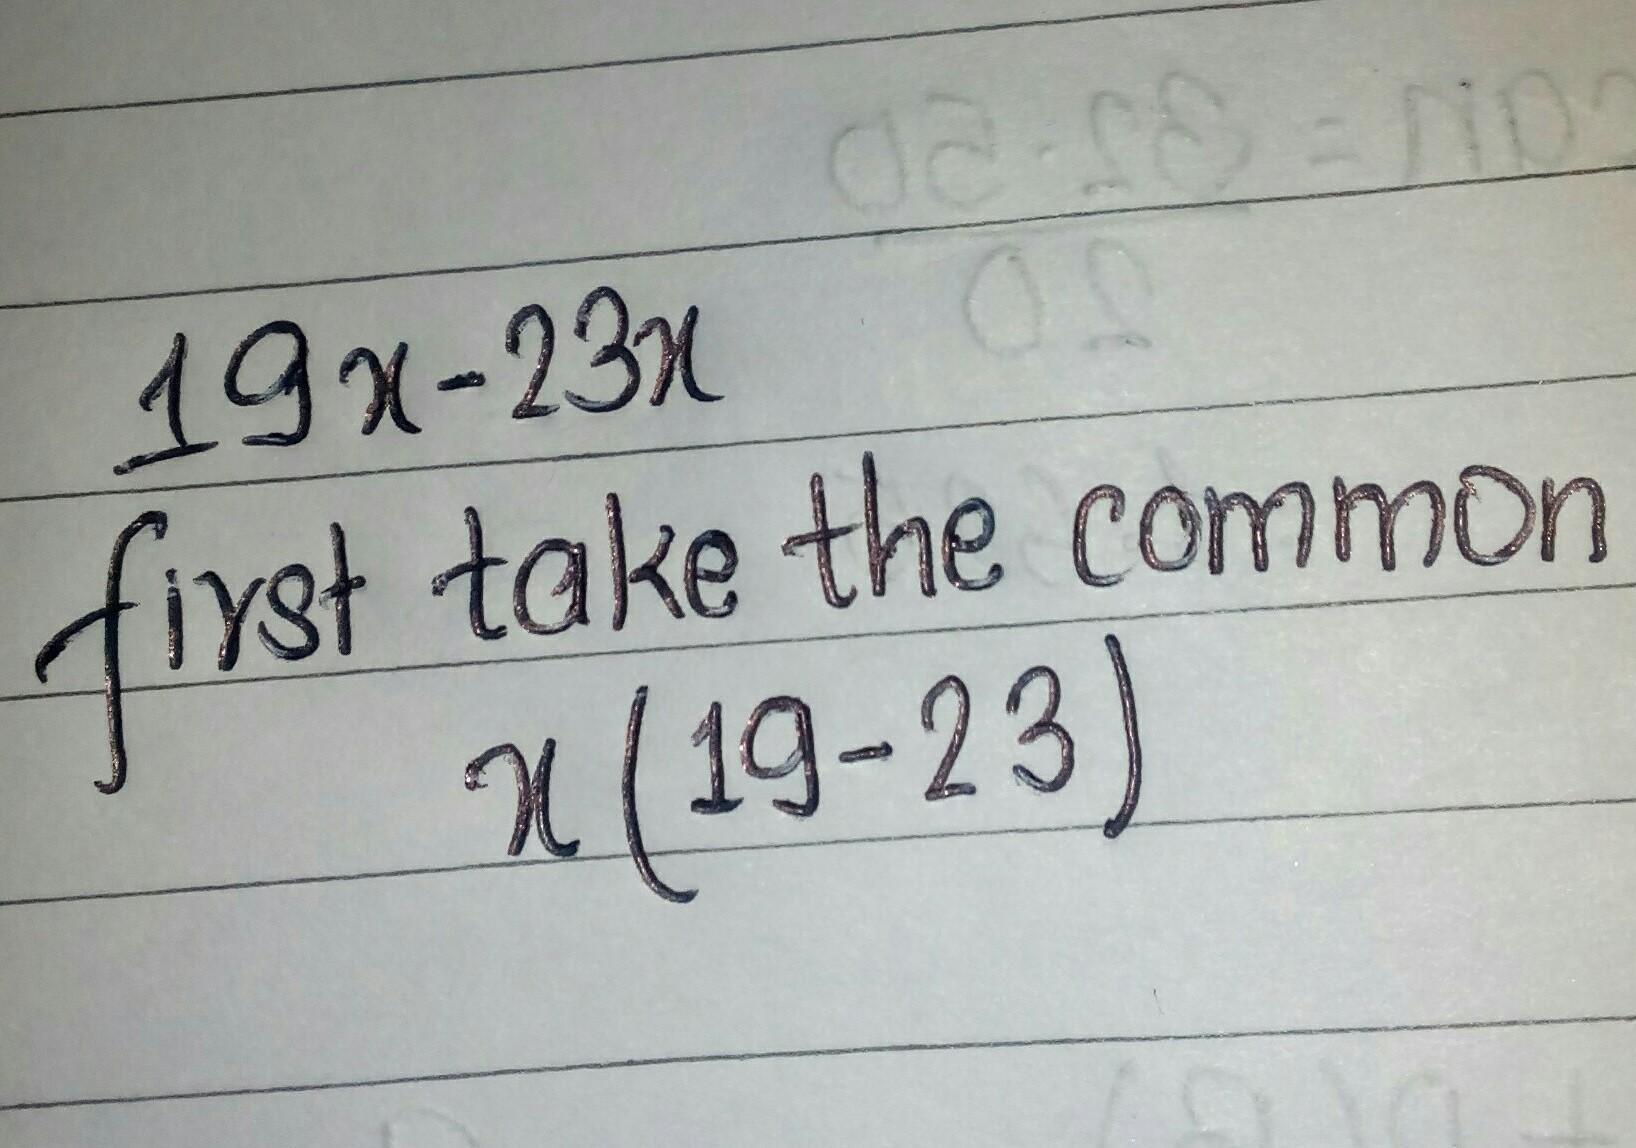 19x-23x
first take the common
x(19-23)